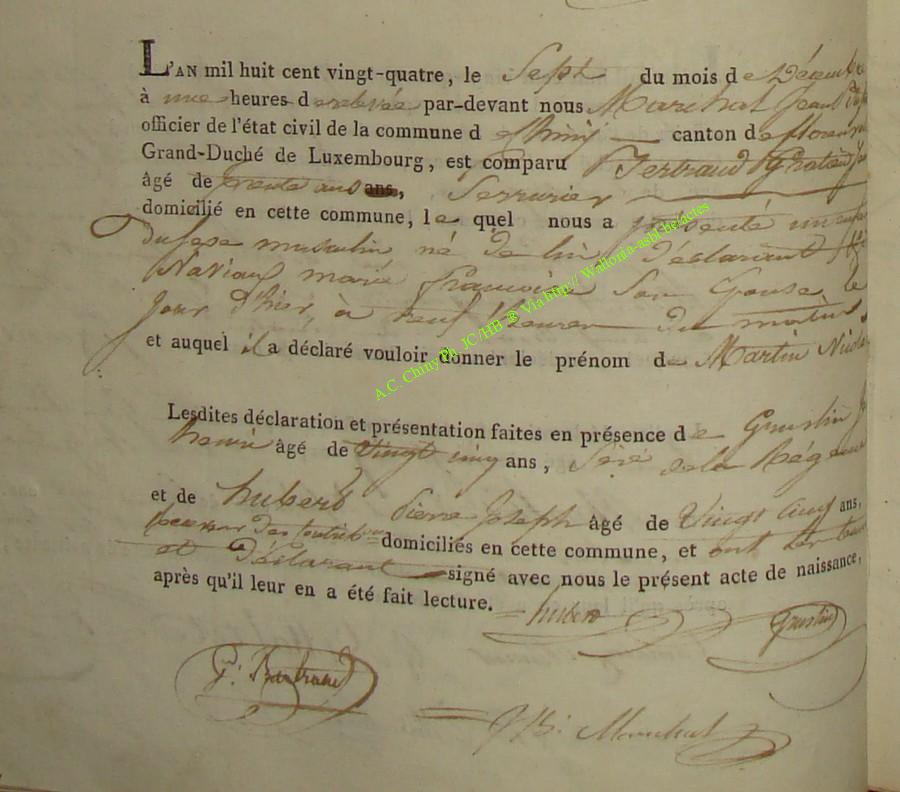 L'AN mil huit cent vingt-quatre, le Sept du mois de Décembre
à une heures d relevée par-devant nous Marchal Jean
officier de l'état civil de la commune d Chiny canton de
Grand-Duché de Luxembourg, est comparu Bertrand
âgé de trente ans ans, Serrurier
domicilié en cette commune, le quel nous a présenté un
du sexe masculin né de lui déclarant
marie Francoise Son Epouse le
jour d'hier, à neuf heures du matin
et auquel il a déclaré vouloir donner le prénom de Martin
Lesdites déclaration et présentation faites en présence de
henri âgé de vingt cinq ans, de la
et de hubert Pierre Joseph âgé de Vingt Cinq ans,
des domiciliés en cette commune, et ont
et déclarant signé avec nous le présent acte de naissance,
après qu'il leur en a été fait lecture.
hubert
Marchal
A.C. Chiny Ph. JC/HB ® Via http:// Wallonia-asbl.be/actes